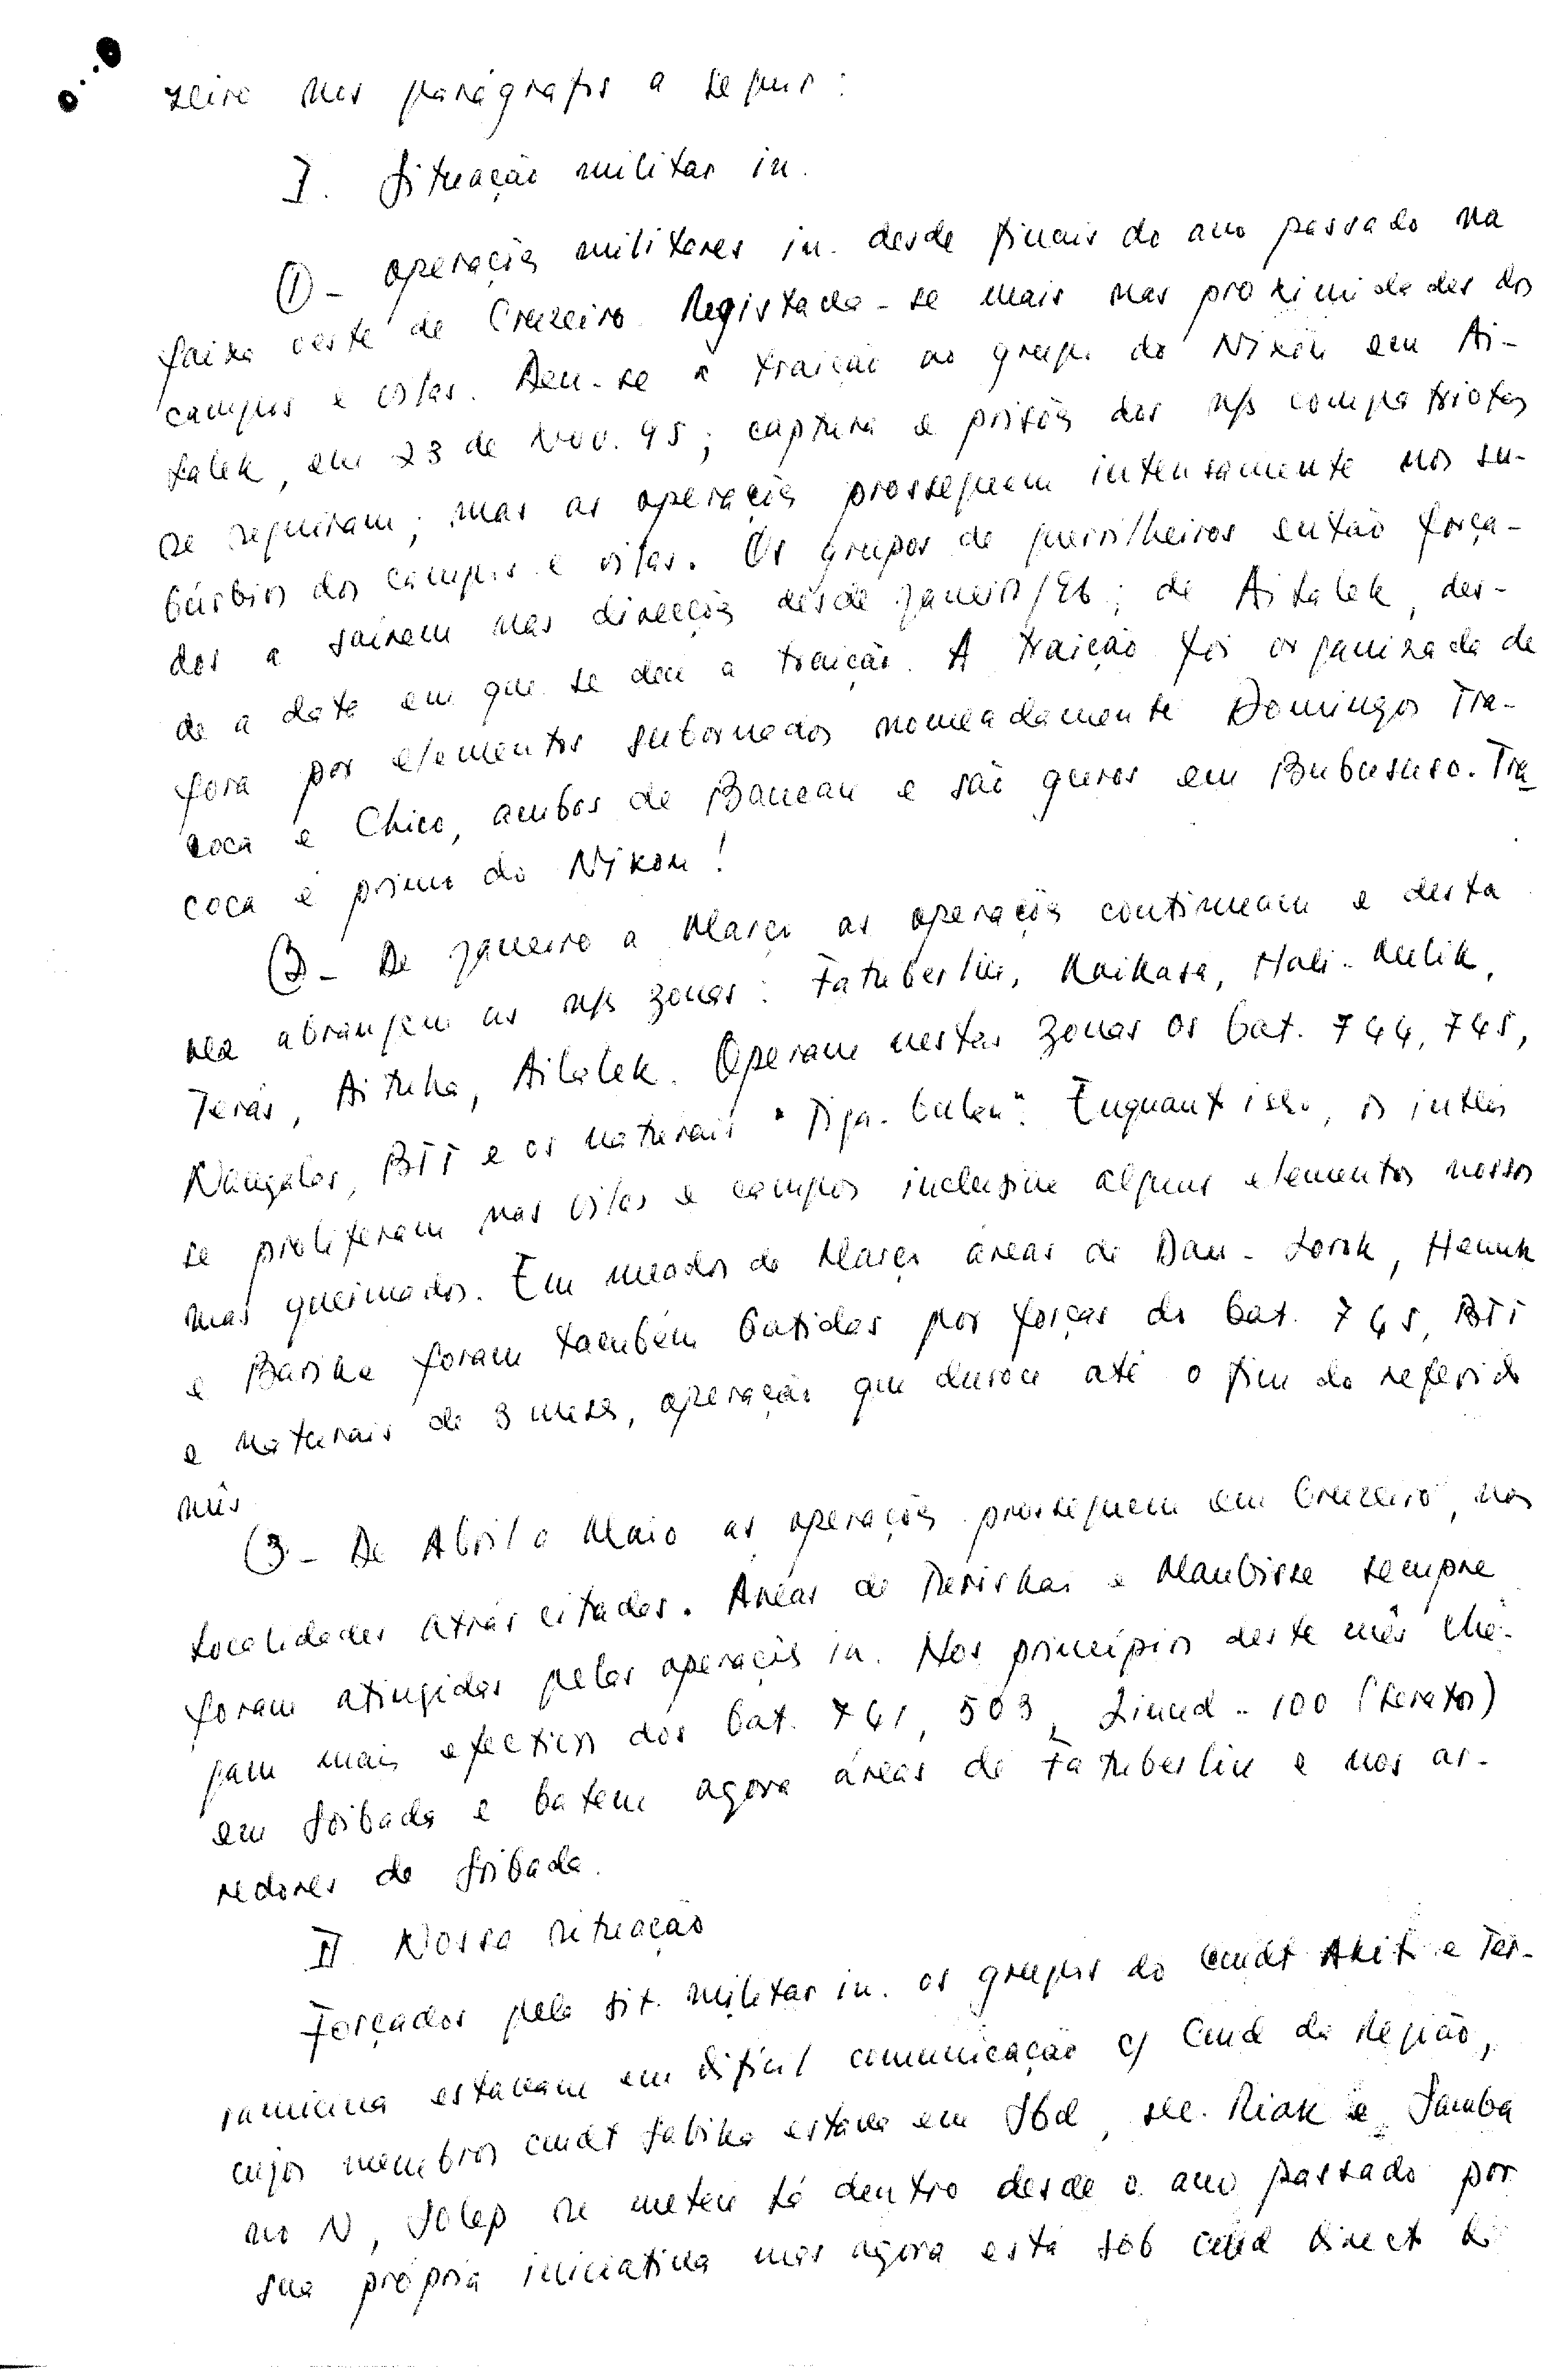 zeiro nos parágrafos a seguir:
I. Situação militar in.
① - Operações militares in. desde finais do ano passado na
faixa oeste de Cruzeiro. Registada-se mais nas proximidades dos
campos e vilas. Deu-se a traição ao grupo do Nixon em Ai-
talek, em 23 de Nov. 95; captura e prisões dos n/s compatriotas
se seguiram; mas as operações prosseguem intensamente nos su-
búrbios dos campos e vilas. Os grupos de guerrilheiros então força-
dos a saírem nas direcções desde Janeiro/96; de Aitalek, des-
de a data em que se deu a traição. A traição foi organizada de
fora por elementos subornados nomeadamente Domingos Tra-
coca e Chico, ambos de Bancau e são genros em Bubususo. Tra
coca é primo do Nixon!
② - De Janeiro a Março as operações continuam e desta
vez abrangem as n/s zonas: Fatuberliu, Kaikasa, Hali-Mulik,
Terás, Aituha, Ailalek. Operam nestas zonas os bat. 744, 745,
Nangalas, BTT e os naturais "Tiga-bulan". Enquanto isso, os intéis
se proliferam nas vilas e campos inclusive alguns elementos nossos
mas queimados. Em meados de Março áreas de Dau-Lorok, Hamuk
e Barike foram também batidas por forças do bat. 745, BTT
e naturais de 3 meses, operação que durou até o fim do referido
mês
③ - De Abril a Maio as operações prosseguem em Cruzeiro, nas
localidades atrás citadas. Áreas de Teriskai e Maubisse sempre
foram atingidas pelas operações in. Nos princípios deste mês che-
gam mais efectivos dos bat. 741, 503, Linud-100 (Kerator)
em Soibada e batem agora áreas de Fatuberliu e nos ar-
redores de Soibada.
II Nossa situação
Forçados pela sit. militar in. os grupos do cmdt Akita e Ter-
ramiana estavam em difícil comunicação c/ Cmd da Região,
cujos membros cmdt Sabika estava em Sbd, sec. Riak e Samba
no N, Solep se meteu lá dentro desde o ano passado por
sua própria iniciativa mas agora está sob cmd direct do